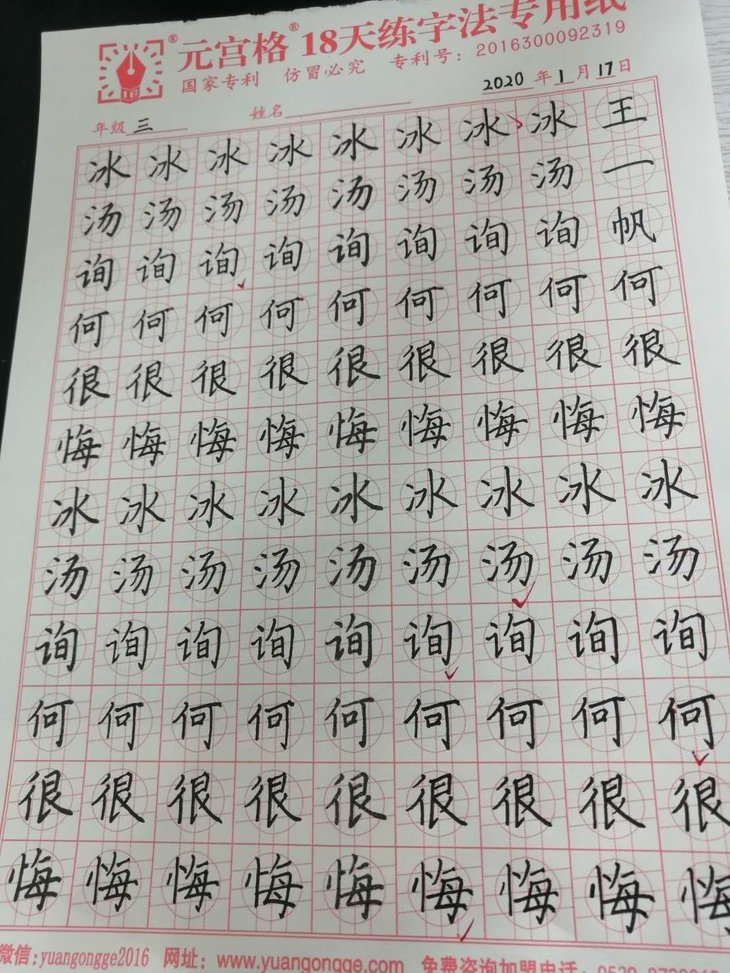 元宫格® 18天练字法专用纸
国家专利 仿冒必究 专利号：2016300092319
2020年1月17日
年级 三 姓名
冰冰冰冰冰冰冰冰王
汤汤汤汤汤汤汤汤一
询询询询询询询询帆
何何何何何何何何何
很很很很很很很很很
悔悔悔悔悔悔悔悔悔
冰冰冰冰冰冰冰冰冰
汤汤汤汤汤汤汤汤汤
询询询询询询询询询
何何何何何何何何何
很很很很很很很很很
悔悔悔悔悔悔悔悔悔
微信:yuangongge2016 网址：www.yuangongge.com 免费咨询加盟电话：